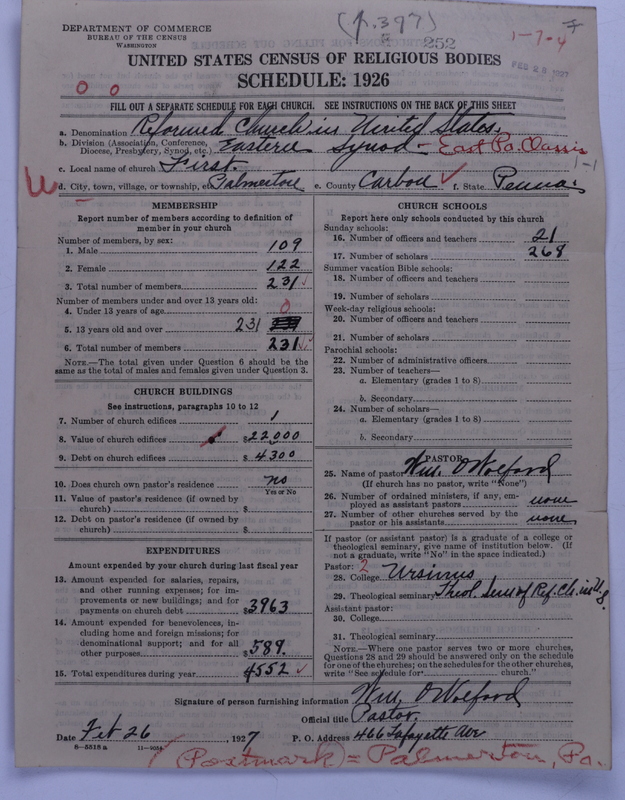 (p.397)
252
1-7-4
FEB 28 1927
DEPARTMENT OF COMMERCE
BUREAU OF THE CENSUS
WASHINGTON
UNITED STATES CENSUS OF RELIGIOUS BODIES
SCHEDULE: 1926
0 0
FILL OUT A SEPARATE SCHEDULE FOR EACH CHURCH. SEE INSTRUCTIONS ON THE BACK OF THIS SHEET
a. Denomination Reformed Church in United States.
b. Division (Association, Conference, Diocese, Presbytery, Synod, etc.) Eastern Synod - East Pa. Classis
1-1
c. Local name of church First.
d. City, town, village, or township, etc. Palmerton e. County Carbon f. State Penna.
MEMBERSHIP
Report number of members according to definition of
member in your church
Number of members, by sex:
1. Male 109
2. Female 122
3. Total number of members 231
Number of members under and over 13 years old:
4. Under 13 years of age 0
5. 13 years old and over 231
6. Total number of members 231
NOTE.—The total given under Question 6 should be the
same as the total of males and females given under Question 3.
CHURCH BUILDINGS
See instructions, paragraphs 10 to 12
7. Number of church edifices 1
8. Value of church edifices $22000
9. Debt on church edifices $4300
10. Does church own pastor's residence no
Yes or No
11. Value of pastor's residence (if owned by
church) $
12. Debt on pastor's residence (if owned by
church) $
EXPENDITURES
Amount expended by your church during last fiscal year
13. Amount expended for salaries, repairs,
and other running expenses; for im-
provements or new buildings; and for
payments on church debt $3963
14. Amount expended for benevolences, in-
cluding home and foreign missions; for
denominational support; and for all
other purposes $589.
15. Total expenditures during year 4552
CHURCH SCHOOLS
Report here only schools conducted by this church
Sunday schools:
16. Number of officers and teachers 21
17. Number of scholars 268
Summer vacation Bible schools:
18. Number of officers and teachers
19. Number of scholars
Week-day religious schools:
20. Number of officers and teachers
21. Number of scholars
Parochial schools:
22. Number of administrative officers
23. Number of teachers—
a. Elementary (grades 1 to 8)
b. Secondary
24. Number of scholars—
a. Elementary (grades 1 to 8)
b. Secondary
PASTOR
25. Name of pastor Wm. O Wolford
(If church has no pastor, write "None")
26. Number of ordained ministers, if any, em-
ployed as assistant pastors none
27. Number of other churches served by the
pastor or his assistants none
If pastor (or assistant pastor) is a graduate of a college or
theological seminary, give name of institution below. (If
not a graduate, write "No" in the space indicated.)
Pastor: 2
28. College Ursinus
29. Theological seminary Theol. Sem of Ref. Ch. in U.S.
Assistant pastor:
30. College
31. Theological seminary
NOTE.—Where one pastor serves two or more churches,
Questions 28 and 29 should be answered only on the schedule
for one of the churches; on the schedules for the other churches,
write "See schedule for church."
Signature of person furnishing information Wm. O Wolford
Official title Pastor.
Date Feb 26, 1927 P. O. Address 466 Lafayette Ave
8—5518 a
(Postmark) = Palmerton, Pa.